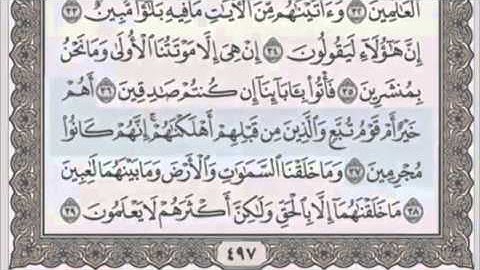 ٱلْعَٰلَمِينَ ٣٢ وَءَاتَيْنَٰهُم مِّنَ ٱلْءَايَٰتِ مَا فِيهِ بَلَٰٓؤٌا۟ مُّبِينٌ ٣٣
إِنَّ هَٰٓؤُلَآءِ لَيَقُولُونَ ٣٤ إِنْ هِىَ إِلَّا مَوْتَتُنَا ٱلْأُولَىٰ وَمَا نَحْنُ
بِمُنشَرِينَ ٣٥ فَأْتُوا۟ بِـَٔابَآئِنَآ إِن كُنتُمْ صَٰدِقِينَ ٣٦ أَهُمْ
خَيْرٌ أَمْ قَوْمُ تُبَّعٍ وَٱلَّذِينَ مِن قَبْلِهِمْ أَهْلَكْنَٰهُمْ إِنَّهُمْ كَانُوا۟
مُجْرِمِينَ ٣٧ وَمَا خَلَقْنَا ٱلسَّمَٰوَٰتِ وَٱلْأَرْضَ وَمَا بَيْنَهُمَا لَٰعِبِينَ
٣٨ مَا خَلَقْنَٰهُمَآ إِلَّا بِٱلْحَقِّ وَلَٰكِنَّ أَكْثَرَهُمْ لَا يَعْلَمُونَ ٣٩
٤٩٧